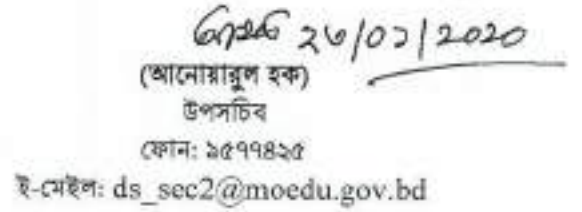 ২৩/০১/২০২০
(আনোয়ারুল হক)
উপসচিব
ফোন: ৯৫৭৭৪২৫
ই-মেইল: ds_sec2@moedu.gov.bd